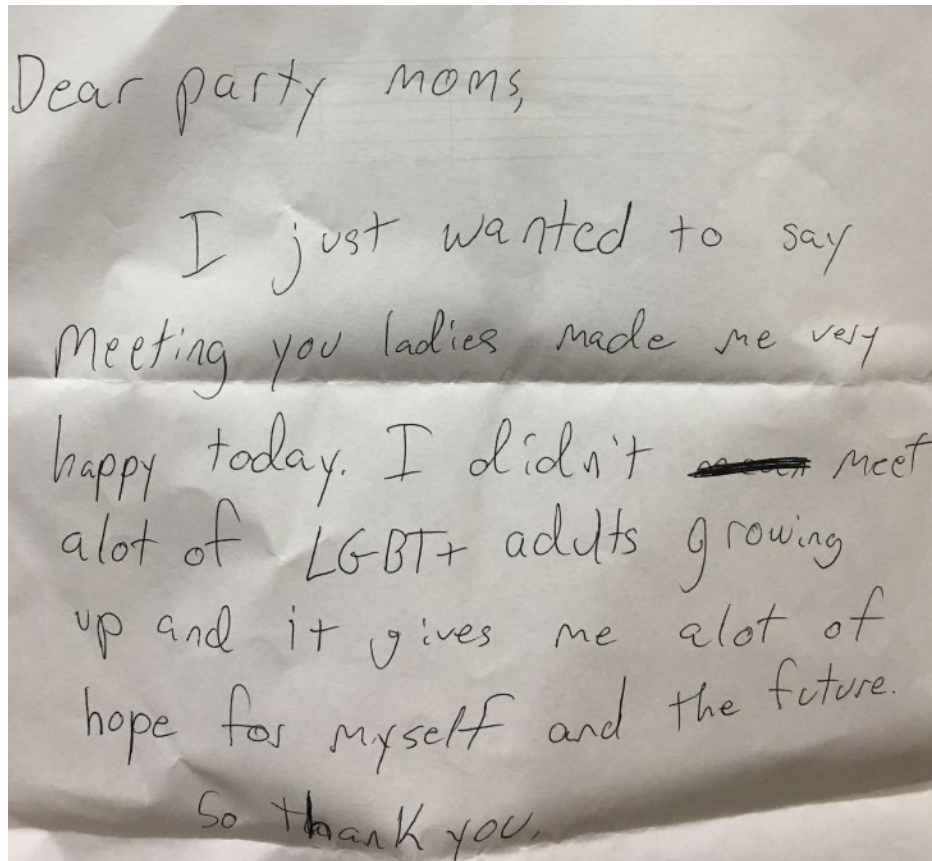 Dear party moms,
I just wanted to say
Meeting you ladies made me very
happy today. I didn't meet
alot of LGBT+ adults growing
up and it gives me alot of
hope for myself and the future.
So thank you.